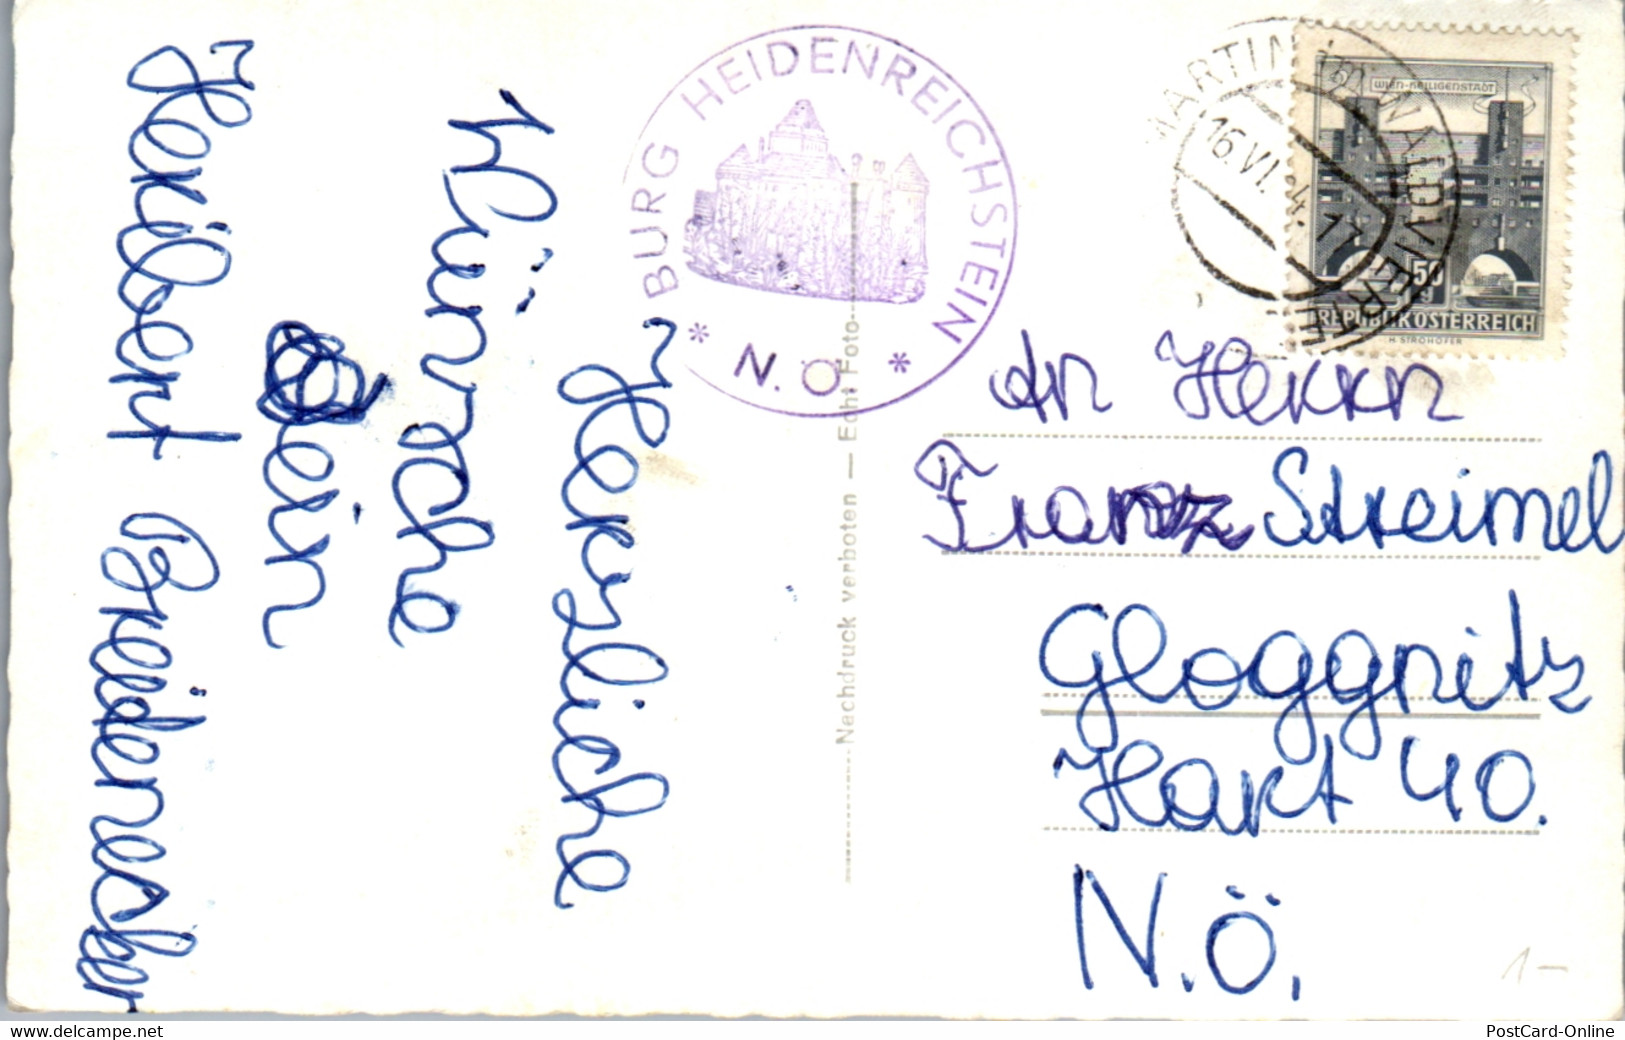 Herzliche
Wünsche
Dein
Heribert Breidenecker
Nachdruck verboten — Echt Foto
BURG HEIDENREICHSTEIN
* N.Ö. *
16.VI. 17
WIEN-HEILIGENSTADT
50
REPUBLIK ÖSTERREICH
H. STROHOFER
An Herrn
Franz Streimel
Gloggnitz
Hart 40.
N.Ö.
1-
PostCard-Online